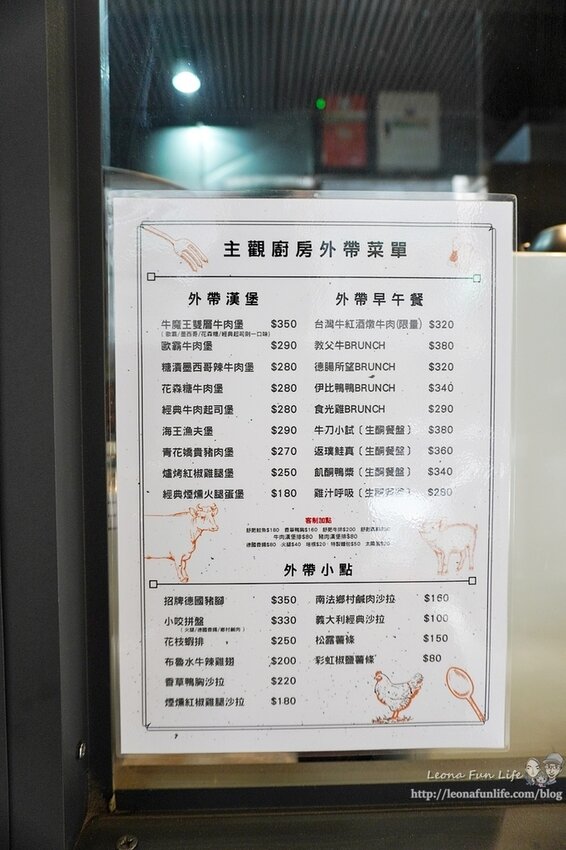 主觀廚房外帶菜單
外帶漢堡
牛魔王雙層牛肉堡 $350
歐霸牛肉堡 $290
糖漬墨西哥辣牛肉堡 $280
花森糖牛肉堡 $280
經典牛肉起司堡 $280
海王漁夫堡 $290
青花嬌貴豬肉堡 $270
爐烤紅椒雞腿堡 $250
經典煙燻火腿蛋堡 $180
外帶早午餐
台灣牛紅酒燉牛肉(限量) $320
教父牛BRUNCH $380
德腸所望BRUNCH $320
伊比鴨鴨BRUNCH $340
食光雞BRUNCH $290
牛刀小試〔生酮餐盤〕 $380
返璞鮭真〔生酮餐盤〕 $360
飢酮鴨漿〔生酮餐盤〕 $340
雞汁呼吸〔生酮餐盤〕 $280
客制加點
牛肉漢堡排$80 豬肉漢堡排$80
外帶小點
招牌德國豬腳 $350
小咬拼盤 $330
(火腿/德國香腸/鄉村鹹肉)
花枝蝦排 $250
布魯水牛辣雞翅 $200
香草鴨胸沙拉 $220
煙燻紅椒雞腿沙拉 $180
南法鄉村鹹肉沙拉 $160
義大利經典沙拉 $100
松露薯條 $150
彩虹椒鹽薯條 $80
Leona Fun Life
http://leonafunlife.com/blog